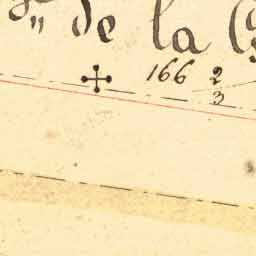 de la
166 2/3